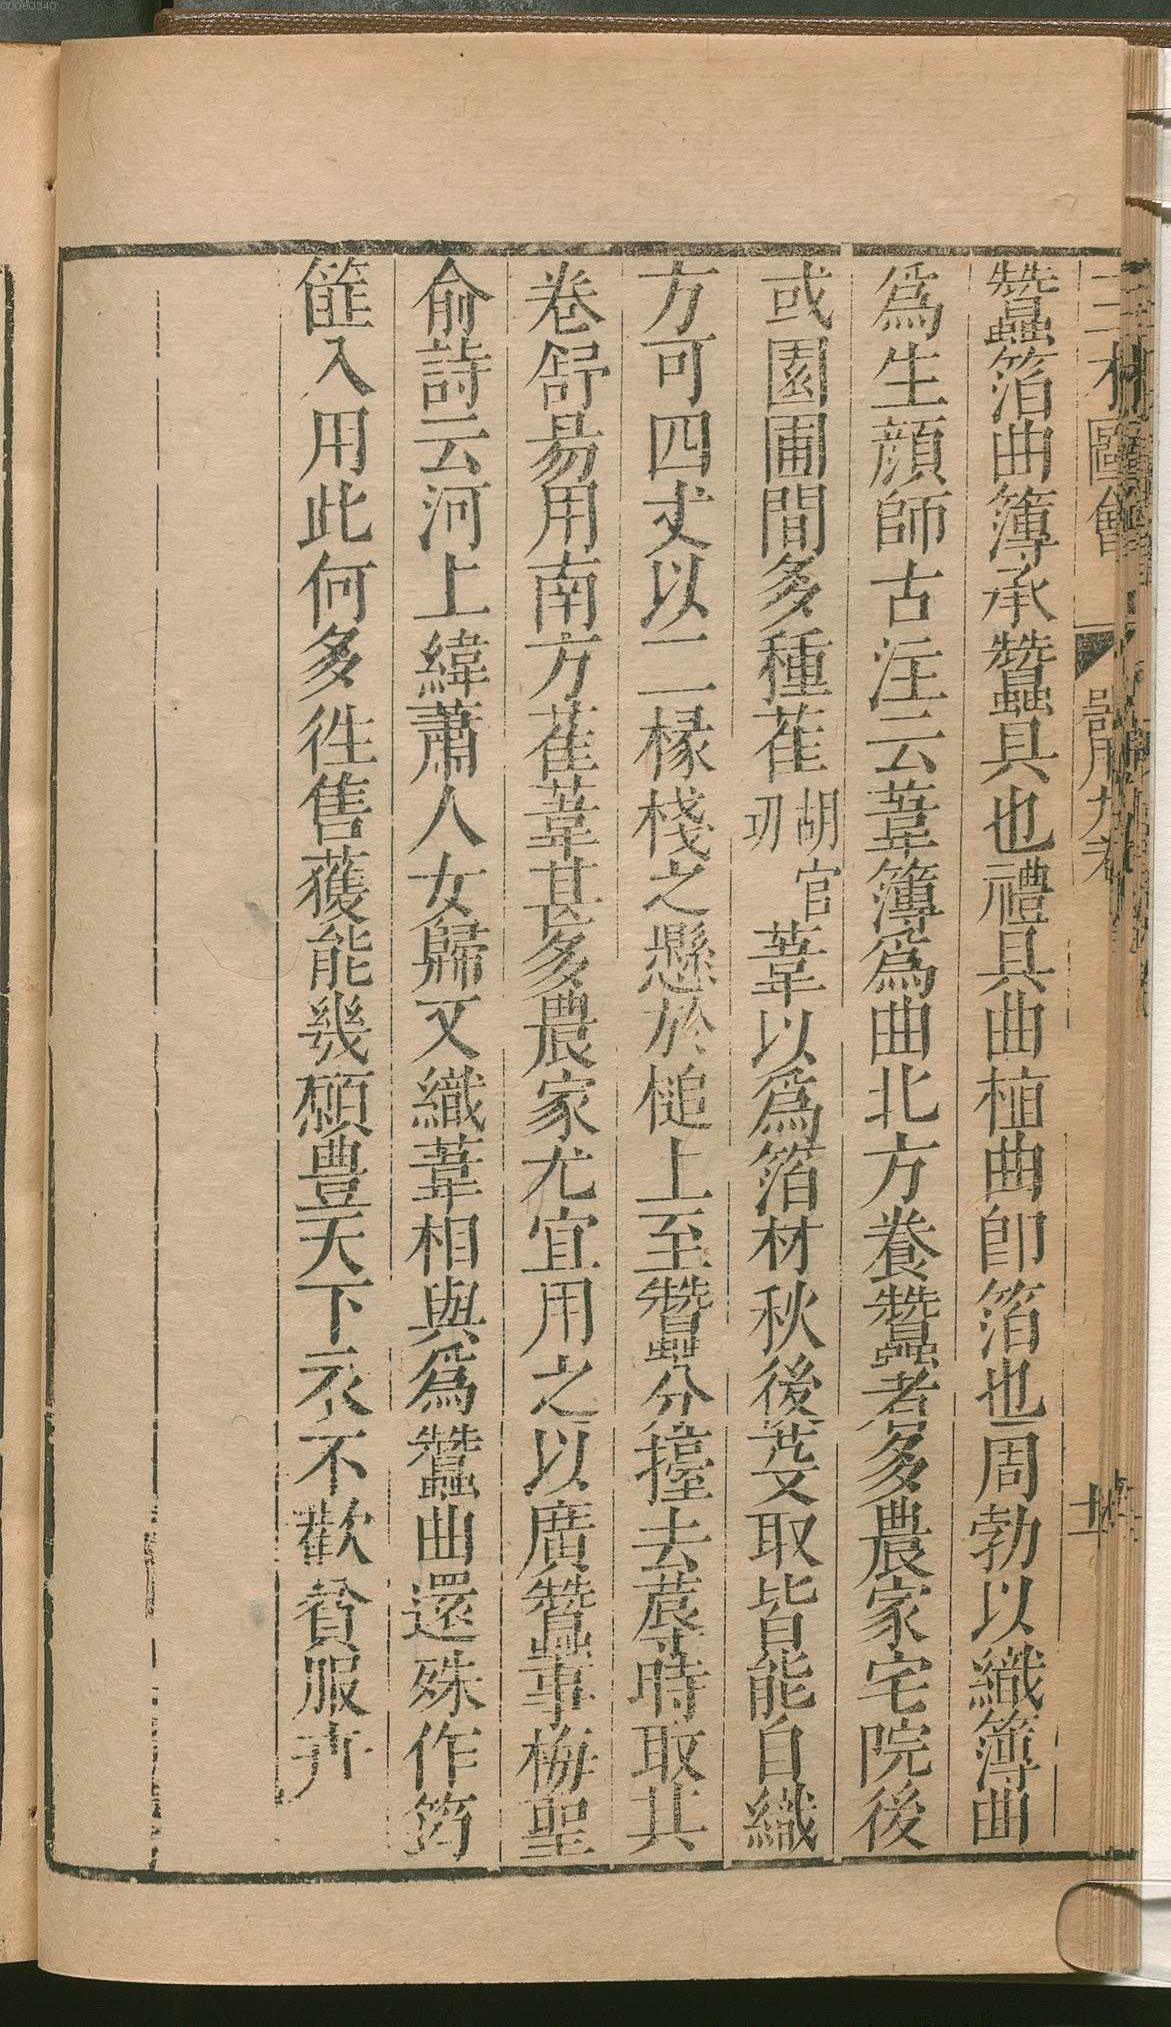 00060340
三才圖會
器用九卷
十
蠶箔曲簿承蠶具也禮具曲植曲即箔也周勃以織簿曲
爲生顔師古注云葦簿爲曲北方養蠶者多農家宅院後
或園圃間多種萑胡官切葦以爲箔材秋後芟取皆能自織
方可四丈以二椽棧之懸於槌上至蠶分擡去蓐時取其
卷舒易用南方萑葦甚多農家尤宜用之以廣蠶事梅聖
俞詩云河上緯蕭人女歸又織葦相與爲蠶曲還殊作筠
篚入用此何多徃售獲能幾願豊天下衣不歡貧服卉